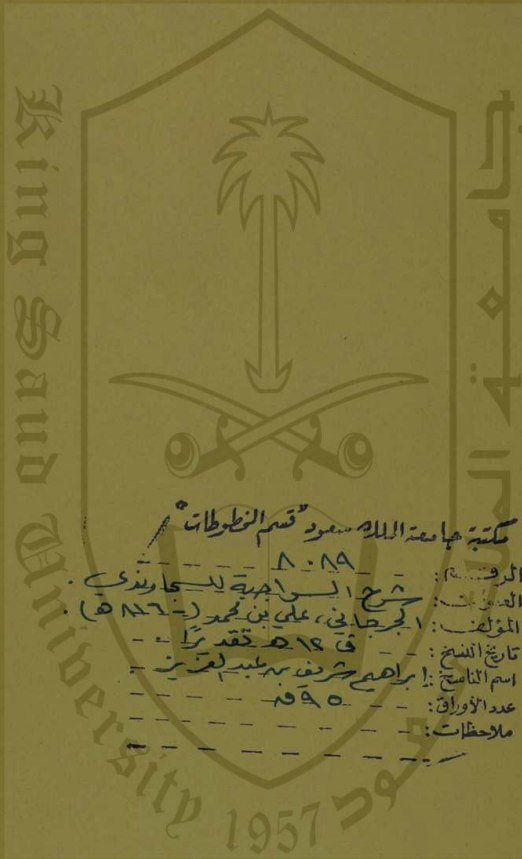 King Saud University
جامعة الملك سعود
1957
مكتبة جامعة الملك سعود "قسم المخطوطات"
الرقم: ٨٠٨٩
العنوان: شرح السراجية للسجاوندي.
المؤلف: الجرجاني، علي بن محمد (-٨١٦ هـ).
تاريخ النسخ: ق ١٢ هـ تقديرًا
اسم الناسخ: ابراهيم شريف بن عبد العزيز
عدد الأوراق: ٩٥ ق
ملاحظات: